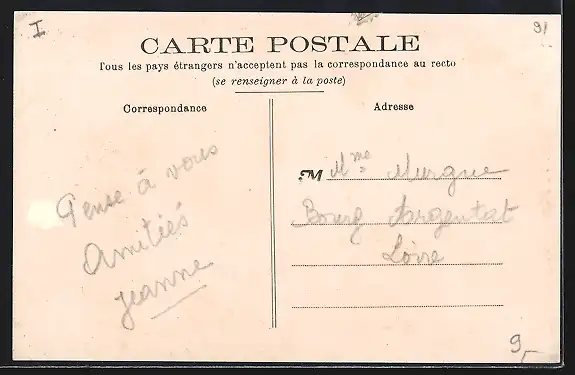 I
91
CARTE POSTALE
Tous les pays étrangers n'acceptent pas la correspondance au recto
(se renseigner à la poste)
Correspondance
Adresse
Pense à vous
Amitiés
Jeanne
M Mme Murgue
Bourg Argentat
Loire
9,-